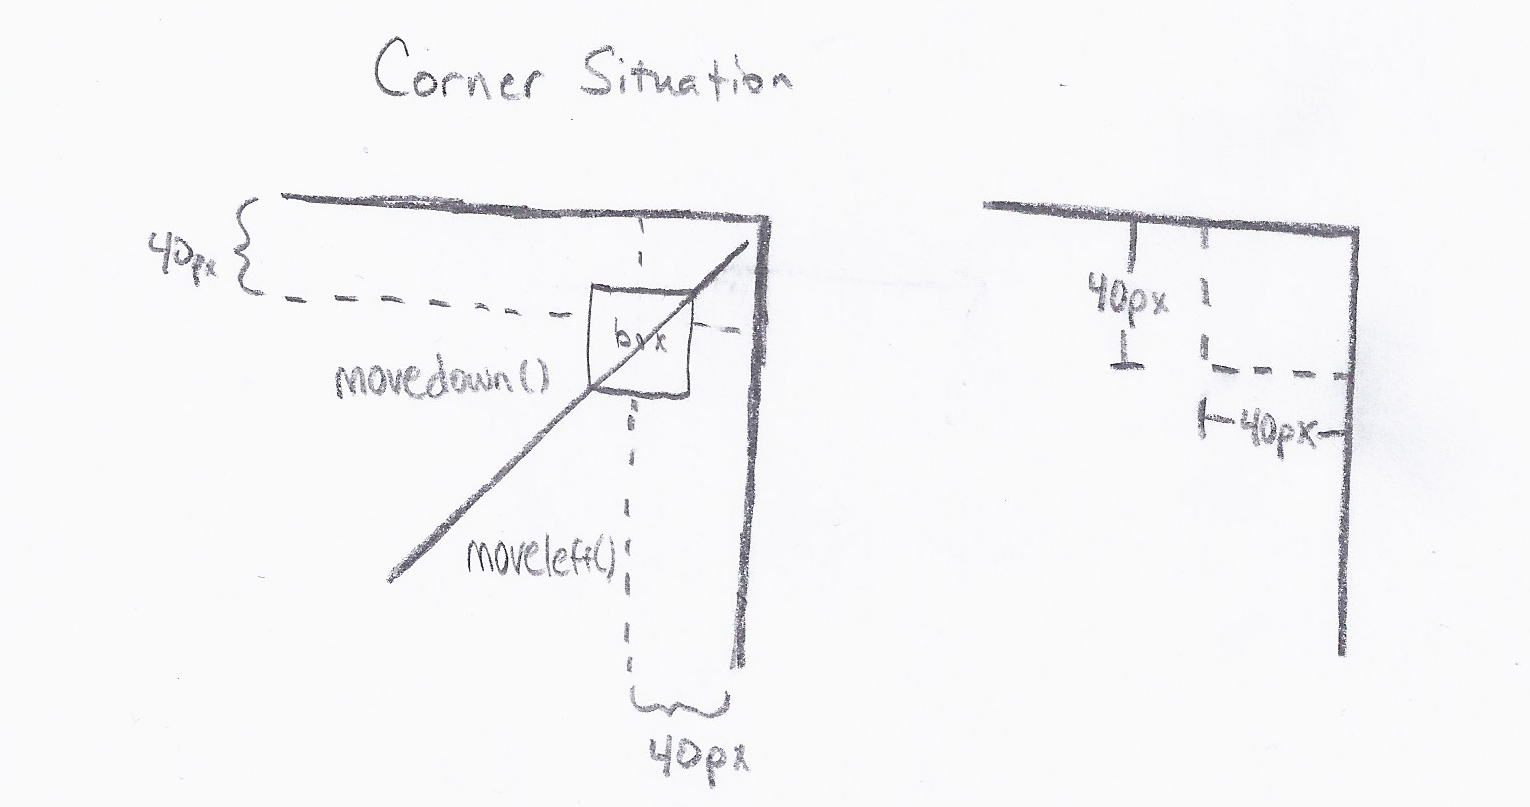 Corner Situation
40px
box
movedown()
moveleft()
40px
40px
40px